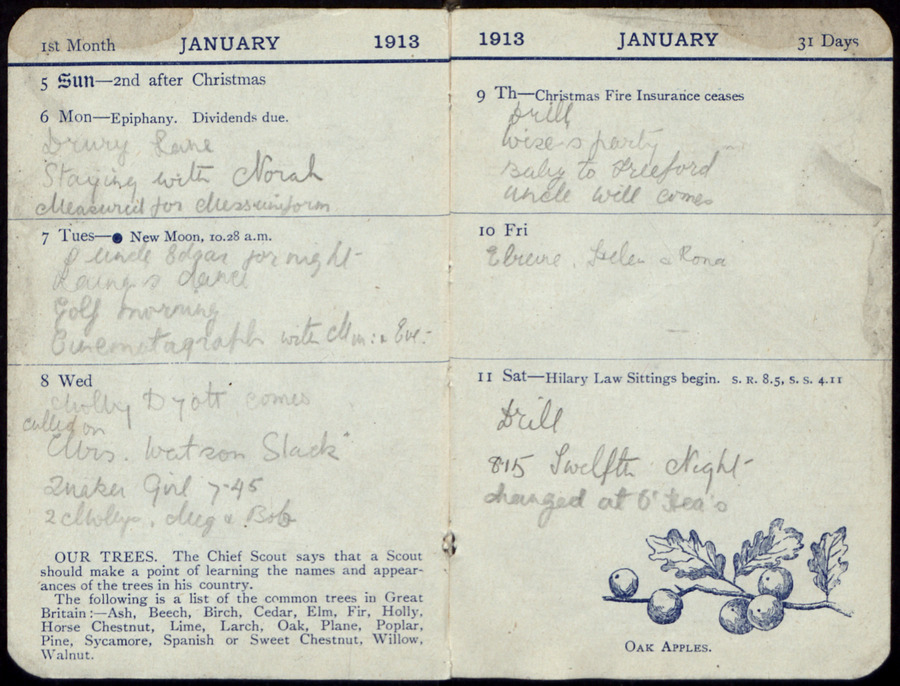 1st Month JANUARY 1913
5 Sun—2nd after Christmas
6 Mon—Epiphany. Dividends due.
Drury Lane
Staying with Norah
Measured for Mess uniform
7 Tues—● New Moon, 10.28 a.m.
Uncle Edgar for night
Laing's dance
Golf morning
Cinematagraph with
8 Wed
Molly Dyott comes
called on
Mrs. Watson Slack
Quaker Girl 7-45
2 Mollys, Meg & Bob
OUR TREES. The Chief Scout says that a Scout
should make a point of learning the names and appear-
ances of the trees in his country.
The following is a list of the common trees in Great
Britain:—Ash, Beech, Birch, Cedar, Elm, Fir, Holly,
Horse Chestnut, Lime, Larch, Oak, Plane, Poplar,
Pine, Sycamore, Spanish or Sweet Chestnut, Willow,
Walnut.
1913 JANUARY 31 Days
9 Th—Christmas Fire Insurance ceases
Drill
Wise's party
Baby to Freeford
Uncle Will comes
10 Fri
Helen & Rona
11 Sat—Hilary Law Sittings begin. S. R. 8.5, S. S. 4.11
Drill
8.15 Twelfth Night
changed at O'Hea's
OAK APPLES.